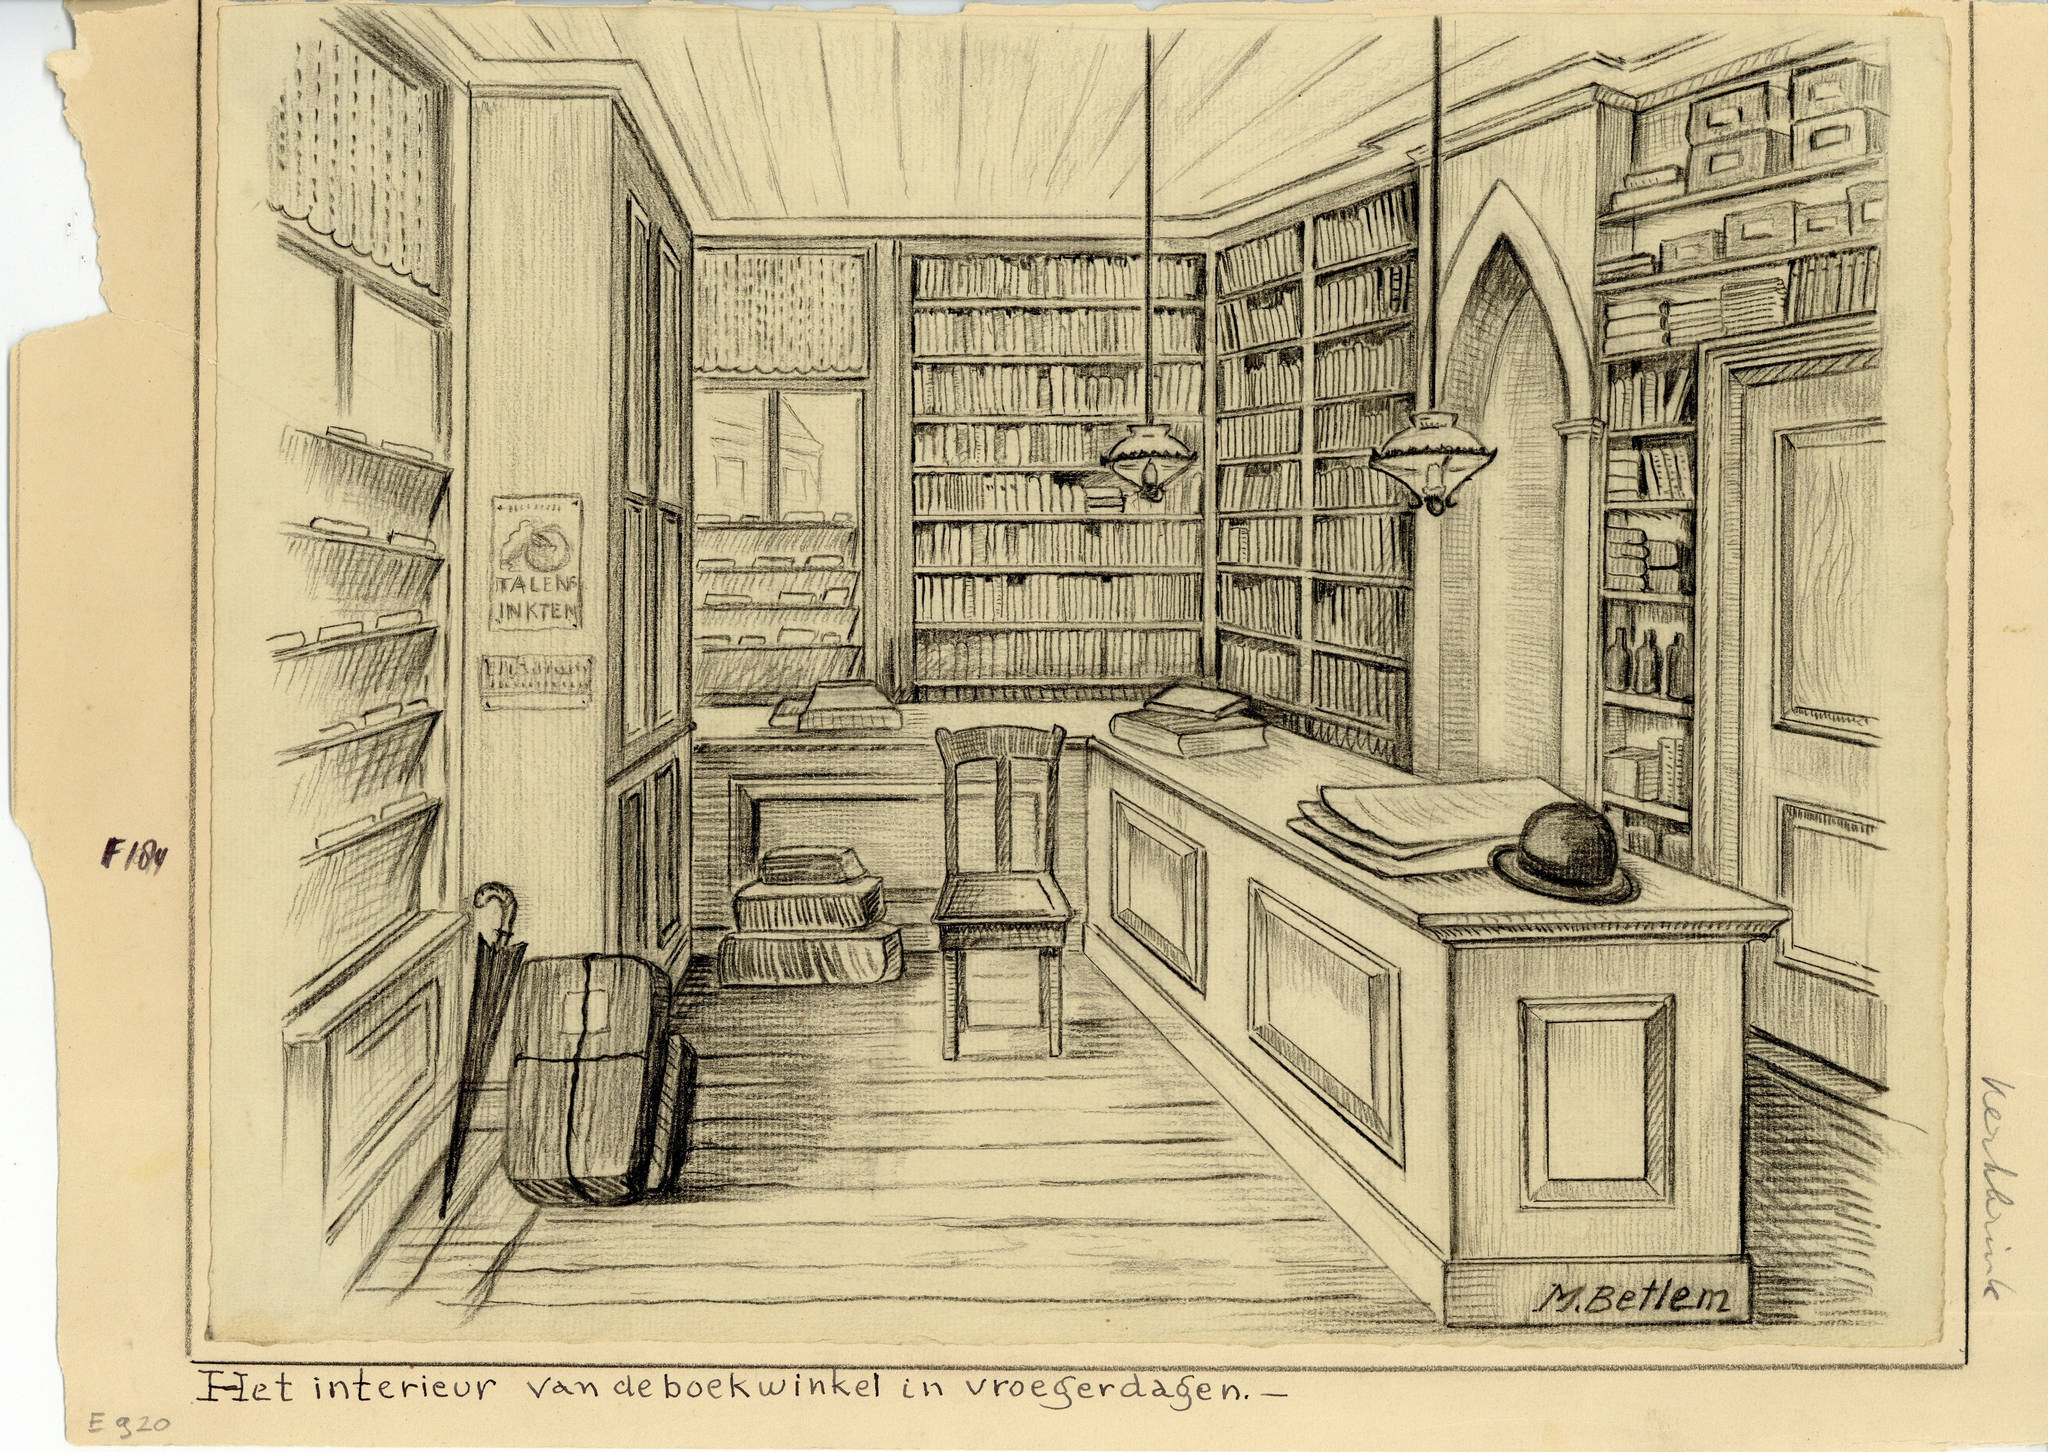 TALENS
INKTEN
F184
M. Betlem
Het interieur van de boekwinkel in vroegerdagen. —
E 920